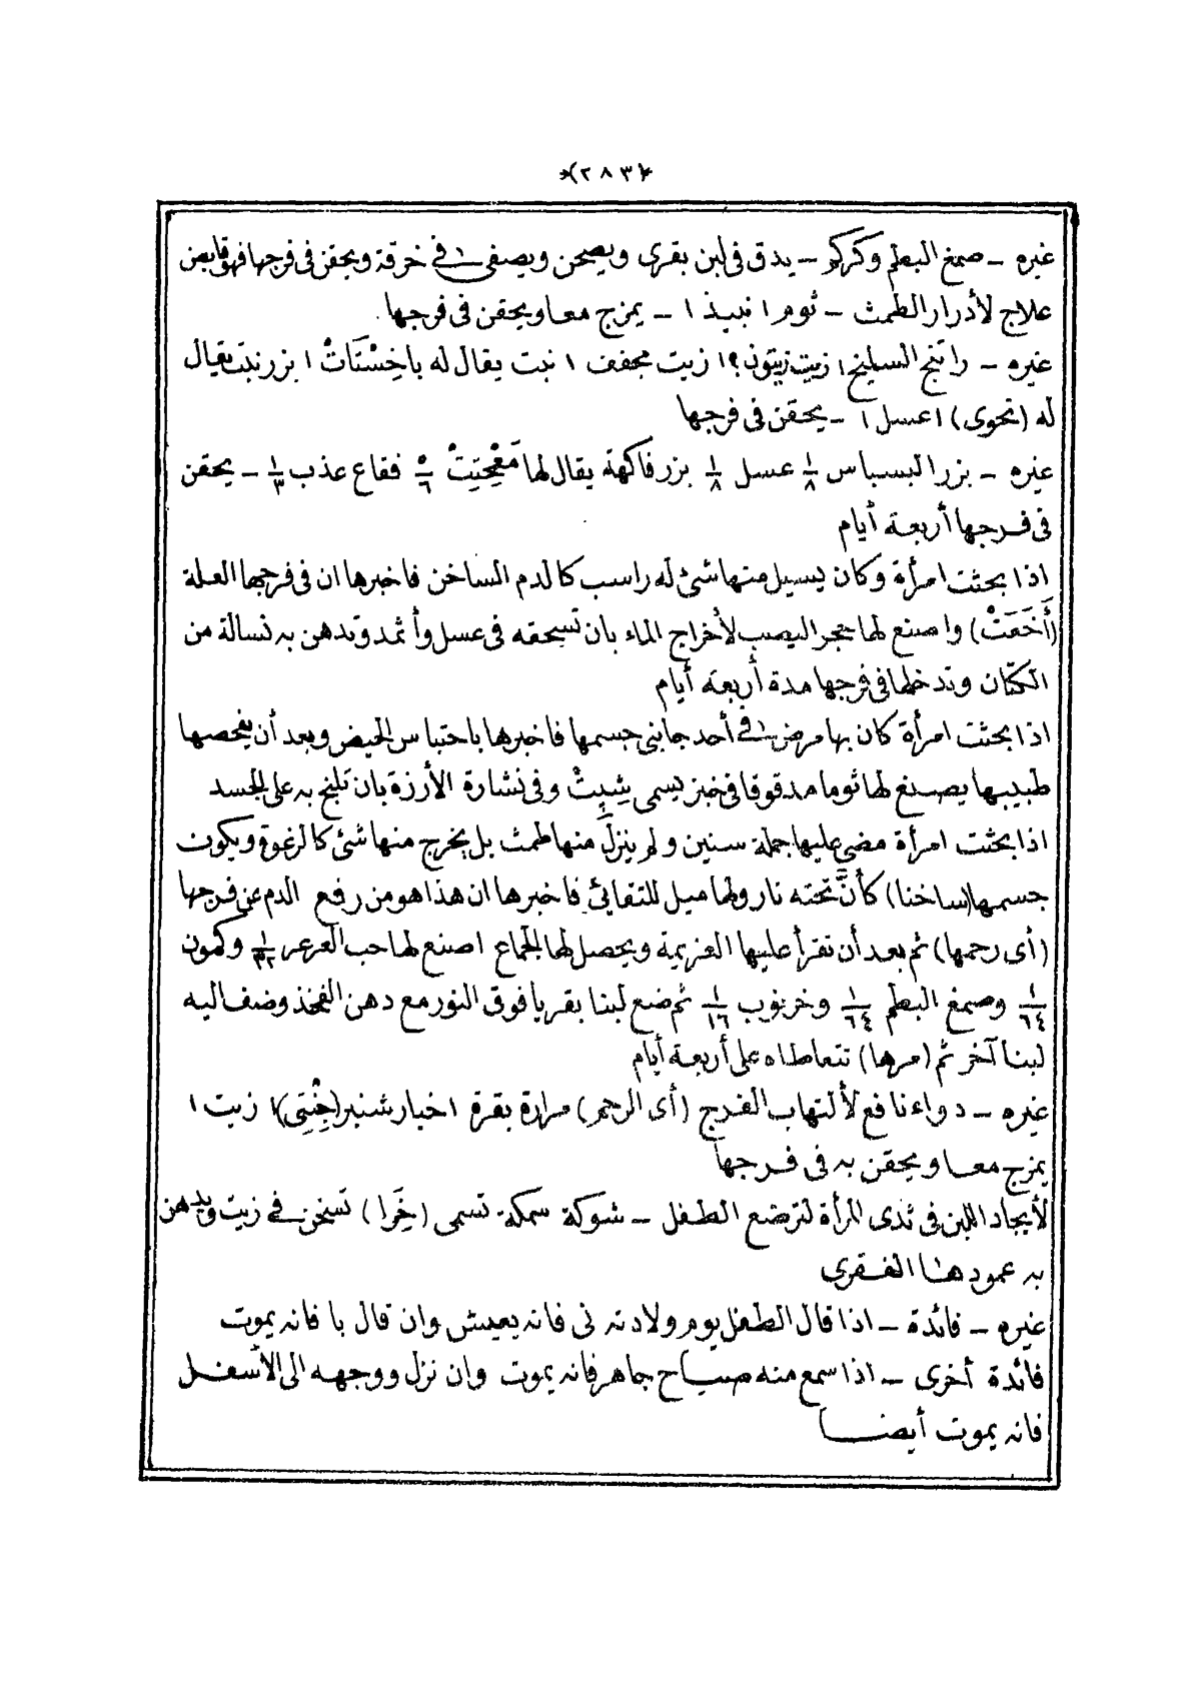 *(٢٨٣)*
غيره - صمغ البطم وكركم - يدق فى لبن بقرى ويصحن ويصفى فى خرقة ويحقن فى فرجها فهو قابض
علاج لأدرار الطمث - ثوم ١ نبيذ ١ - يمزج معا ويحقن فى فرجها.
غيره - راتنج السليخ ١ زيت زيتون؟ ١ زيت مجفف ١ نبت يقال له باخِسْتَاتْ ١ بزر نبت يقال
له (تحوى) ١ عسل ١ - يحقن فى فرجها
غيره - بزر البسباس ١/٨ عسل ١/٨ بزر فاكهة يقال لها ٥/٦ فقاع عذب ١/٣ - يحقن
فى فرجها أربعة أيام
اذا بحثت امرأة وكان يسيل منها شئ له راسب كالدم الساخن فاخبرها ان فى فرجها العلة
(أَخَعَتْ) واصنع لها حجر اليصب لأخراج الماء بان تسحقه فى عسل وأثمد وتدهن به نسالة من
الكتان وتدخلها فى فرجها مدة أربعة أيام
اذا بحثت امرأة كان بها مرض فى أحد جانبى جسمها فاخبرها باحتباس الحيض وبعد أن يفحصها
طبيبها يصنع لها ثوما مدقوقا فى خبز يسمى شِبِتْ وفى نشارة الأرزة بان تلبخ به على الجسد
اذا بحثت امرأة مضى عليها جملة سنين ولم ينزل منها طمث بل يخرج منها شئ كالرغوة ويكون
جسمها (ساخنا) كأنَّ تحته نار ولها ميل للتقائى فاخبرها ان هذا هو من رفع الدم عن فرجها
(أى رحمها) ثم بعد أن تقرأ عليها العزيمة ويحصل لها الجماع اصنع لها حب العرعر ١/٣٢ وكمون
١/٦٤ وصمغ البطم ١/٦٤ وخرنوب ١/١٦ ثم ضع لبنا بقريا فوق النور مع دهن الفخذ وضف اليه
لبنا آخر ثم (مرها) تتعاطاه على أربعة أيام
غيره - دواء نافع لألتهاب الفرج (أى الرحم) مرارة بقرة ١ خيار شنبر (جِنْتِى) ١ زيت ١
يمزج معا ويحقن به فى فرجها
لأيجاد اللبن فى ثدى المرأة لترضع الطفل - شوكة سمكة تسمى (خَرا) تسخن فى زيت ويدهن
به عمودها الفقرى
غيره - فائدة - اذا قال الطفل يوم ولادته نى فانه يعيش وان قال با فانه يموت
فائدة أخرى - اذا سمع منه صياح جاهر فانه يموت وان نزل ووجهه الى الأسفل
فانه يموت أيضا